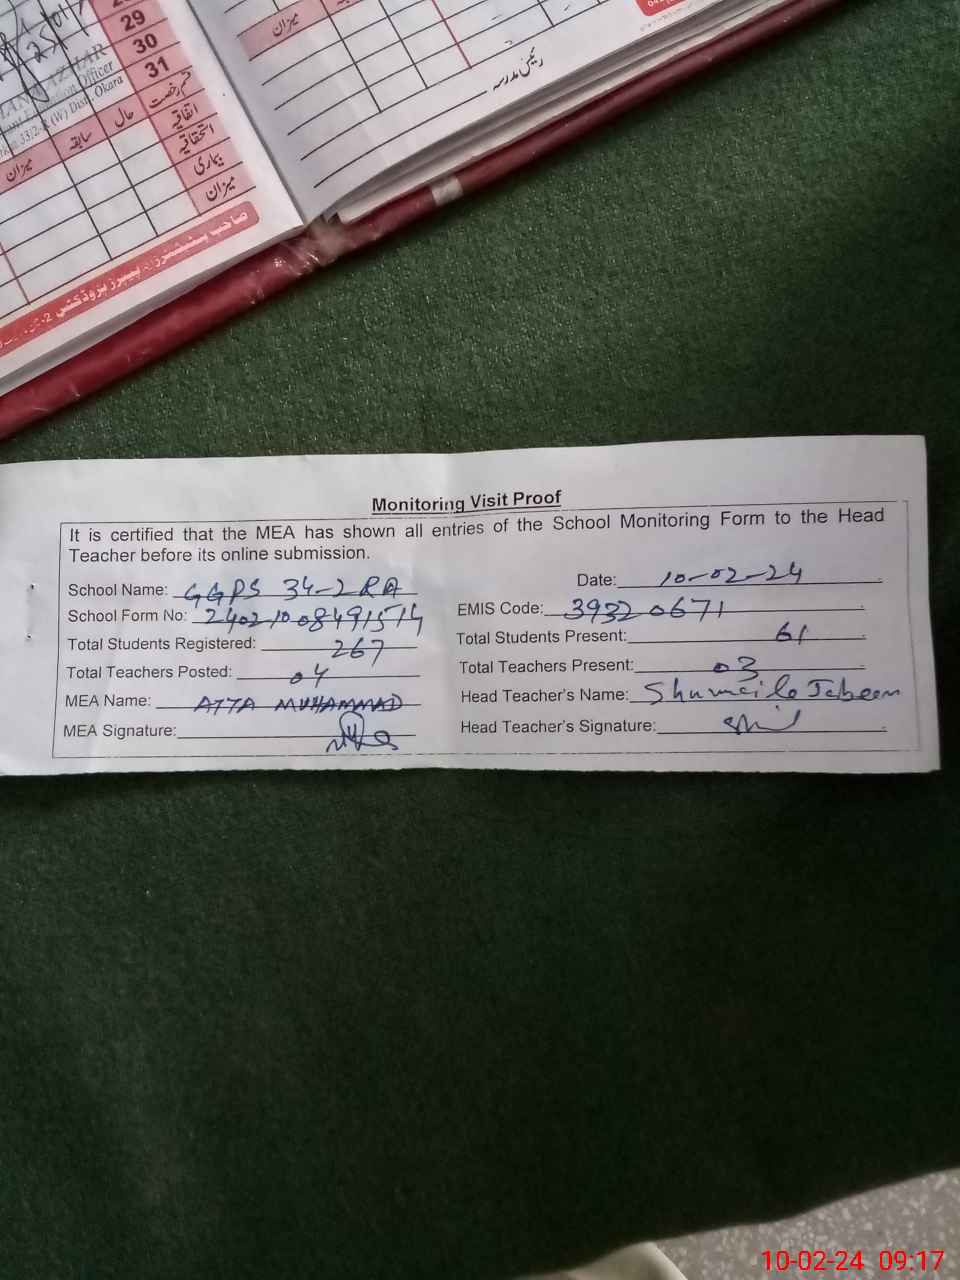 29
30
31
Officer
33/2-R (W) Dist. Okara
میزان
سابقہ
حال
قسم رخصت
اتفاقیہ
استحقاقیہ
بیماری
میزان
میزان
رئیس مدرسہ
Monitoring Visit Proof
It is certified that the MEA has shown all entries of the School Monitoring Form to the Head
Teacher before its online submission.
School Name: GGPS 34-2RA Date: 10-02-24
School Form No: 2402100849 1514 EMIS Code: 39320671
Total Students Registered: 267 Total Students Present: 61
Total Teachers Posted: 04 Total Teachers Present: 03
MEA Name: ATTA MUHAMMAD Head Teacher's Name: Shumaila Jabeen
MEA Signature: Head Teacher's Signature:
10-02-24 09:17